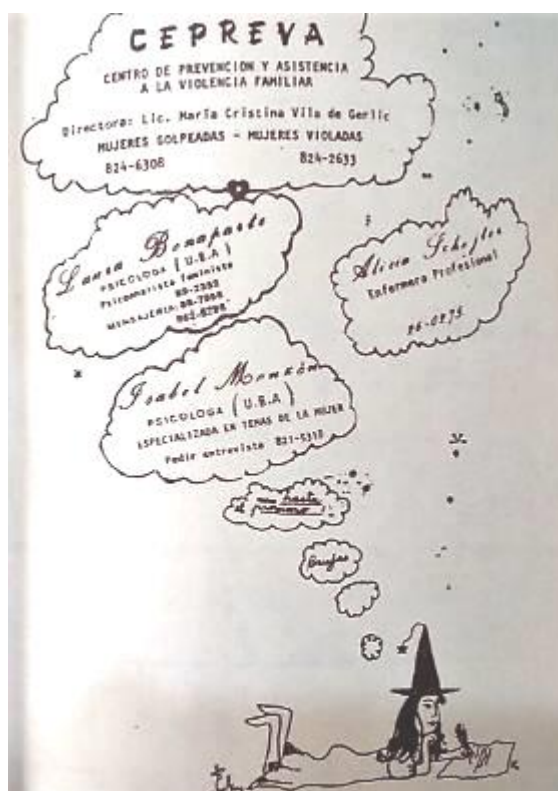 CEPREVA
CENTRO DE PREVENCION Y ASISTENCIA
A LA VIOLENCIA FAMILIAR
Directora: Lic. María Cristina Vila de Gerlic
MUJERES GOLPEADAS - MUJERES VIOLADAS
824-6308 824-2633
Laura Bonaparte
PSICOLOGA (U.B.A)
Psicoanalista feminista
MENSAJERIA:
Alicia Schejter
Enfermera Profesional
Isabel Monzón
PSICOLOGA (U.B.A)
ESPECIALIZADA EN TEMAS DE LA MUJER
Pedir entrevista 821-5318
hasta
el próximo
Brujas